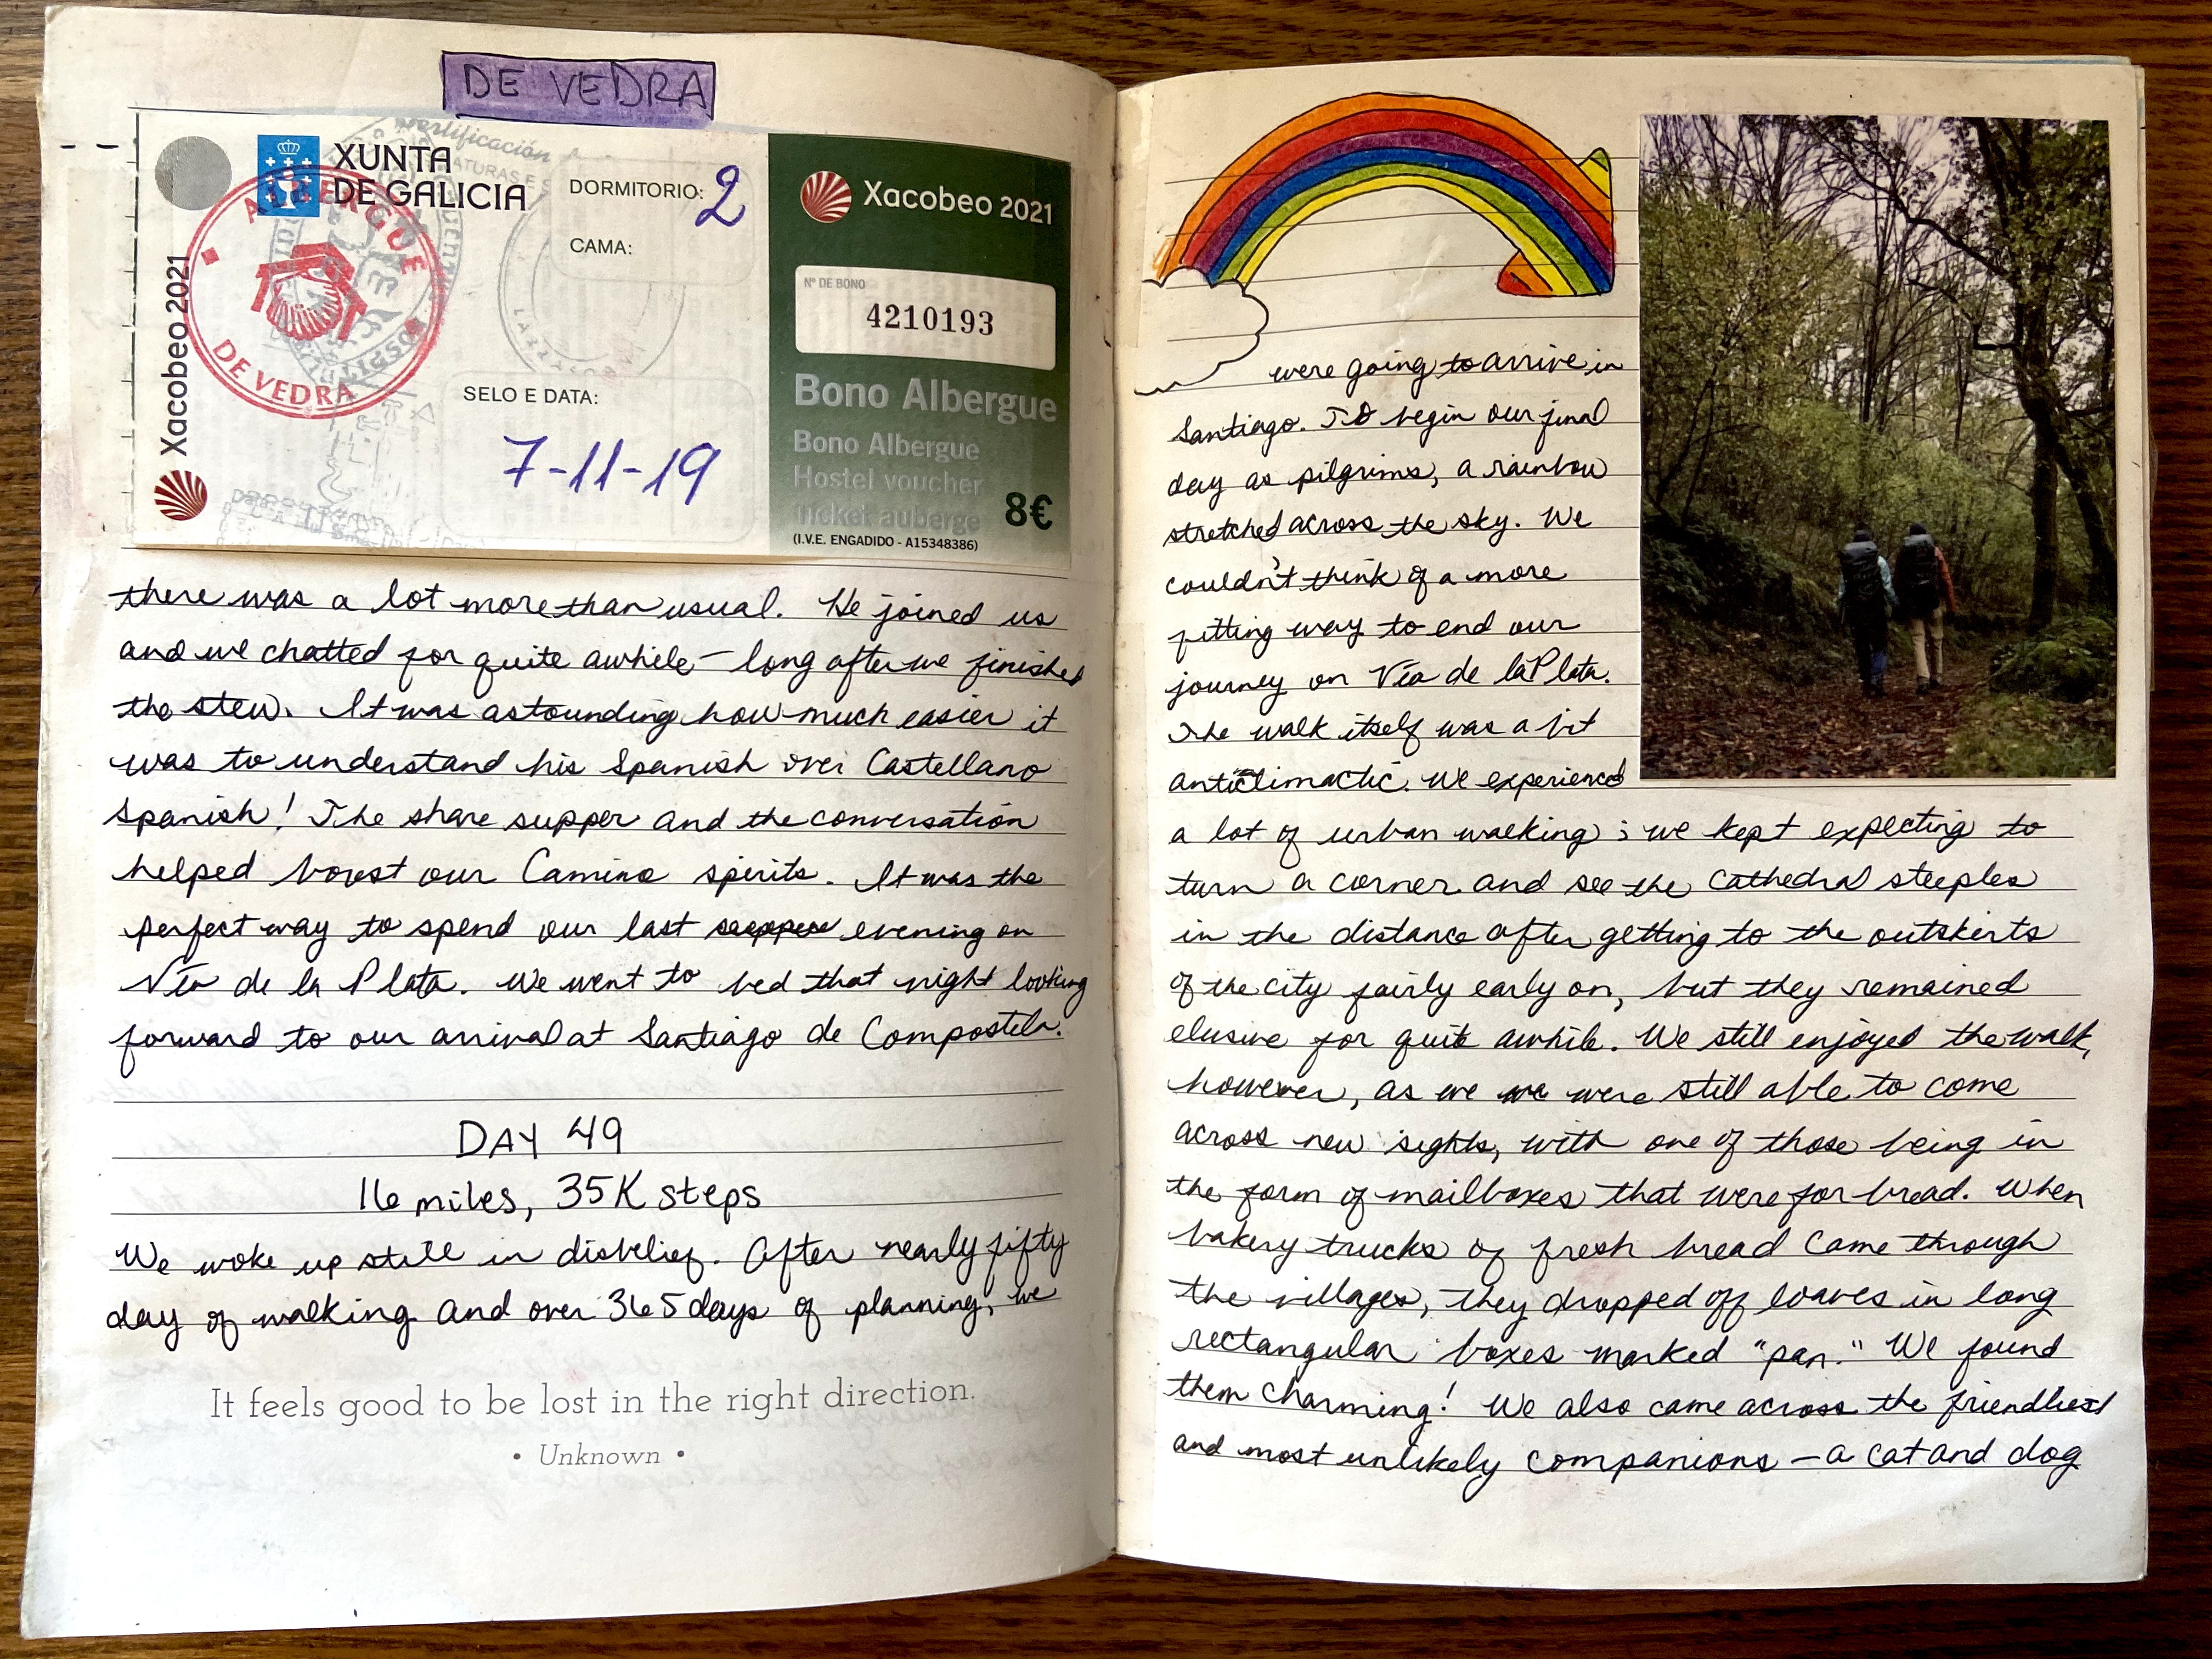 DE VEDRA
XUNTA
DE GALICIA
DORMITORIO: 2
CAMA:
Xacobeo 2021
ALBERGUE
DE VEDRA
SELO E DATA:
7-11-19
Xacobeo 2021
Nº DE BONO
4210193
Bono Albergue
Bono Albergue
Hostel voucher
Ticket auberge
8€
(I.V.E. ENGADIDO - A15348386)
there was a lot more than usual. He joined us
and we chatted for quite awhile – long after we finished
the stew. It was astounding how much easier it
was to understand his Spanish over Castellano
Spanish! The share supper and the conversation
helped boost our Camino spirits. It was the
perfect way to spend our last evening on
Vía de la Plata. We went to bed that night looking
forward to our arrival at Santiago de Compostela.
DAY 49
16 miles, 35K steps
We woke up still in disbelief. After nearly fifty
day of walking and over 365 days of planning, we
It feels good to be lost in the right direction.
• Unknown •
were going to arrive in
Santiago. To begin our final
day as pilgrims, a rainbow
stretched across the sky. We
couldn't think of a more
fitting way to end our
journey on Vía de la Plata.
The walk itself was a bit
anticlimactic. We experienced
a lot of urban walking; we kept expecting to
turn a corner and see the Cathedral steeples
in the distance after getting to the outskirts
of the city fairly early on, but they remained
elusive for quite awhile. We still enjoyed the walk,
however, as we were still able to come
across new sights, with one of those being in
the form of mailboxes that were for bread. When
bakery trucks of fresh bread came through
the villages, they dropped off loaves in long
rectangular boxes marked "pan." We found
them charming! We also came across the friendliest
and most unlikely companions – a cat and dog